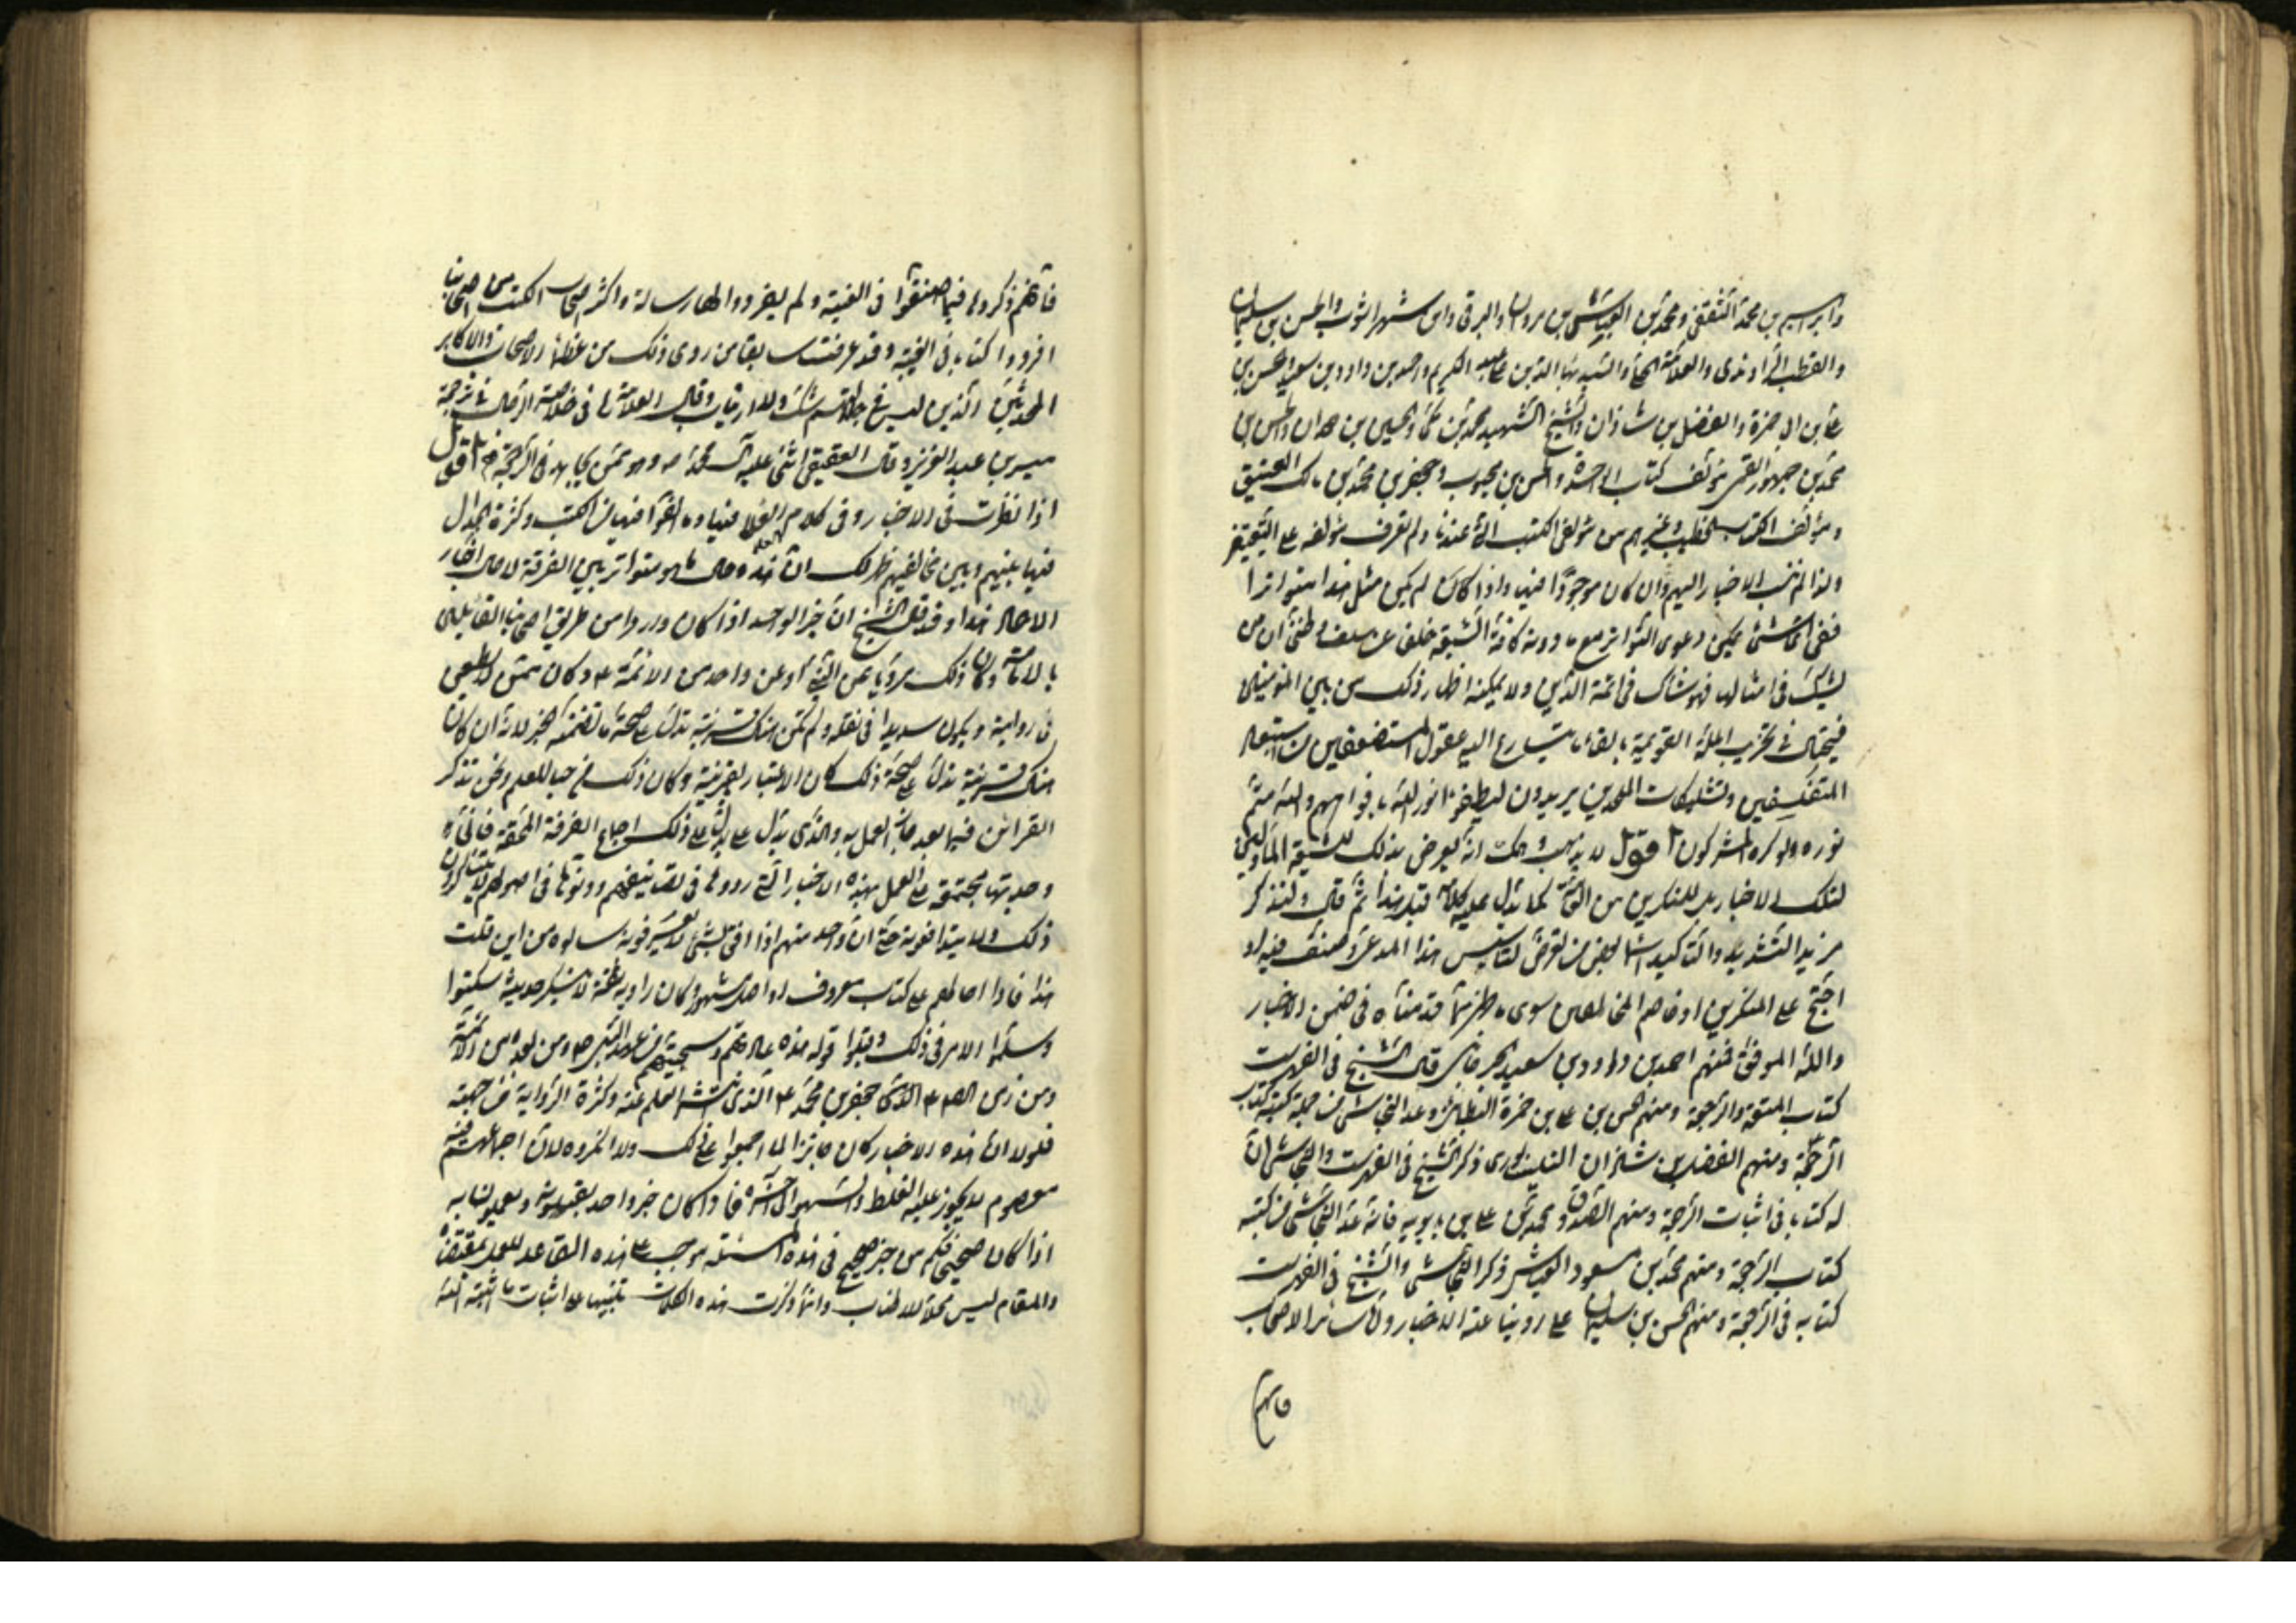 وابراهيم بن محمد الثقفى ومحمد بن العباس بن مروان والبرقى وابن شهراشوب والحسن بن سليمان
والقطب الراوندى والعلامة الحلى والسيد بهاء الدين على بن عبد الكريم واحمد بن داود بن سعيد والحسن بن
على بن ابى حمزة والفضل بن شاذان والشيخ الشهيد محمد بن مكى والحسين بن حمدان والحسن بن
محمد بن جمهور القمى مؤلف كتاب الواحدة والحسن بن محبوب وجعفر بن محمد بن مالك
ومؤلف الكتاب العتيق وكتاب الخطب وغيرهم من مؤلفى الكتب التى عندنا ولم نعرف مؤلفه على التعيين
ولذا لم ننسب الاخبار اليهم وان كان موجودا فيها واذا لم يكن مثل هذا متواترا
ففى اى شئ يمكن دعوى التواتر مع ما روته كافة الشيعة خلفا عن سلف وظنى ان من
يشك فى امثالها فهو شاك فى ائمة الدين ولا يمكنه اظهار ذلك من بين المؤمنين
فيحتال فى تخريب الملة القويمة بالقاء ما يتسارع اليه عقول المستضعفين من استبعاد
المتفلسفين وتشكيكات الملحدين يريدون ليطفئوا نور الله بافواههم والله متم
نوره ولو كره المشركون اقول لا يذهب عليك انه يعرض بذلك للشيعة المأولين
لتلك الاخبار بل للمنكرين من العامة كما يدل عليه كلامه قبل هذا ثم قال ولنذكر
مزيد التشديد والتأكيد اسماء بعض من تعرض لتأسيس هذا المدعى وصنف فيه او
احتج على المنكرين او خاصم المخالفين سوى ما ظهر مما قدمناه فى ضمن الاخبار
والله الموفق فمنهم احمد بن داود بن سعيد الجرجانى قال الشيخ فى الفهرست
كتاب المتعة والرجعة ومنهم الحسن بن على بن حمزة البطائنى وعد النجاشى من جملة كتبه كتاب
الرجعة ومنهم الفضل بن شاذان النيشابورى ذكر الشيخ فى الفهرست والنجاشى ان
له كتابا فى اثبات الرجعة ومنهم الصدوق محمد بن على بن بابويه فانه عد النجاشى من كتبه
كتاب الرجعة ومنهم محمد بن مسعود العياشى ذكر النجاشى والشيخ فى الفهرست
كتابه فى الرجعة ومنهم الحسن بن سليمان على روينا عنه الاخبار واما سائر الاصحاب
فانهم
فانهم ذكروها فيما صنفوا فى الغيبة ولم يفردوا لها رسالة واكثر اصحاب الكتب من اصحابنا
افردوا كتابا فى الغيبة وقد عرفت سابقا من روى ذلك من عظماء الاصحاب والاكابر
المحدثين الذين ليس فى جلالتهم شك ولا ارتياب وقال العلامة فى خلاصة الرجال فى ترجمة
ميسر بن عبد العزيز وقال العقيقى اثنى عليه آل محمد ص وهو ممن يجاهد فى الرجعة اقول
اذا نظرت فى الاخبار وفى كلام العلماء فيها وما الفوا فيها من الكتب وكثرة الجدال
فيها بينهم وبين مخالفيهم ظهر لك ان هذه حال ما هو متواتر بين الفرقة لا حال اخبار
الاحاد هذا وقد نقل الشيخ ان خبر الواحد اذا كان واردا من طريق اصحابنا القائلين
بالامامة وكان ذلك مرويا عن النبى او عن واحد من الائمة ع وكان ممن لا يطعن
فى روايته ويكون سديدا فى نقله ولم تكن هناك قرينة تدل على صحة ما تضمنه الخبر لانه ان كان
هناك قرينة تدل على صحة ذلك كان الاعتبار بالقرينة وكان ذلك موجبا للعلم ونحن نذكر
القرائن فيما بعد جاز العمل به والذى يدل على ذلك اجماع الفرقة المحقة فانى
وجدتها مجتمعة على العمل بهذه الاخبار التى رووها فى تصانيفهم ودونوها فى اصولهم لا يتناكرون
ذلك ولا يتدافعونه حتى ان واحدا منهم اذا افتى بشئ لا يعرفونه سالوه من اين قلت
هذا فاذا احالهم على كتاب معروف او اصل مشهور وكان راويه ثقة لا ينكر حديثه سكتوا
وسلموا الامر فى ذلك وقبلوا قوله هذه عادتهم وسجيتهم من عهد النبى ص ومن بعده من الائمة
ومن زمن الصادق جعفر بن محمد ع الذى انتشر العلم عنه وكثرة الرواية من جهته
فلولا ان هذه الاخبار كان جائزا لما اجمعوا على ذلك ولانكروه لان اجماعهم فيه
معصوم لا يجوز عليه الغلط والسهو الى آخره فاذا كان خبر واحد يقبلونه ويعملون به
اذا كان صحيحا فكم من خبر صحيح فى هذه المسئلة موجب على هذه القاعدة للعمل بمقتضاه
والمقام ليس محلا للاطناب وانما ذكرت هذه الكلمات تنبيها على اثبات ما اثبته الله